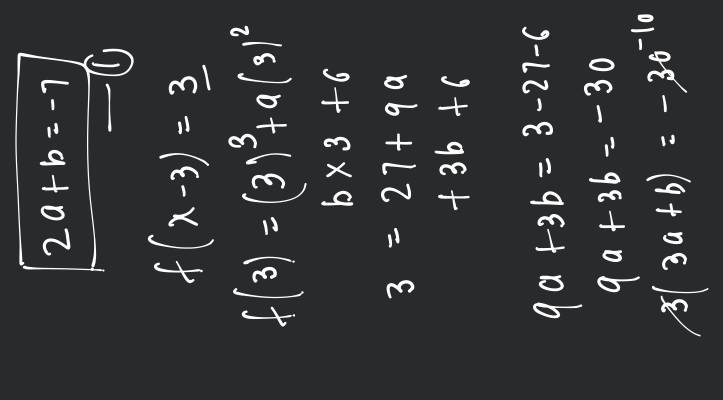 2a+b=-7 — ①
f(x-3) = 3
f(3) = (3)³+a(3)²
b×3 +6
3 = 27+9a
+3b +6
9a+3b = 3-27-6
9a+3b = -30
3(3a+b) = -30 -10